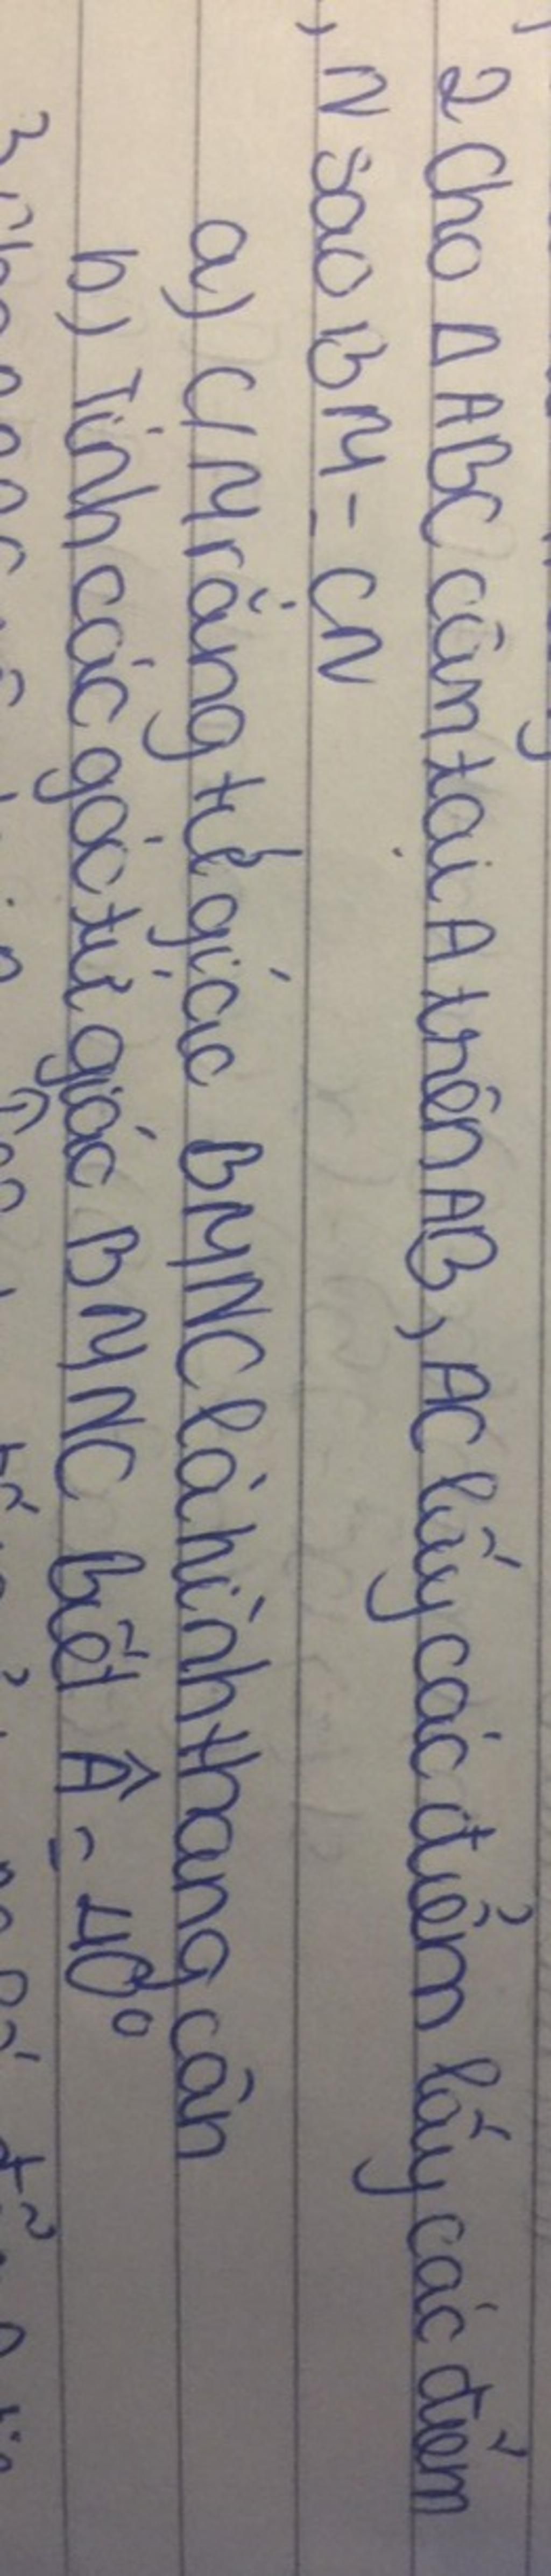 2 Cho Δ ABC cân tại A trên AB, AC lấy các điểm lấy các điểm
, N sao BM = CN
a) CM rằng tứ giác BMNC là hình thang cân
b) Tính các góc tứ giác BMNC biết Â = 40°